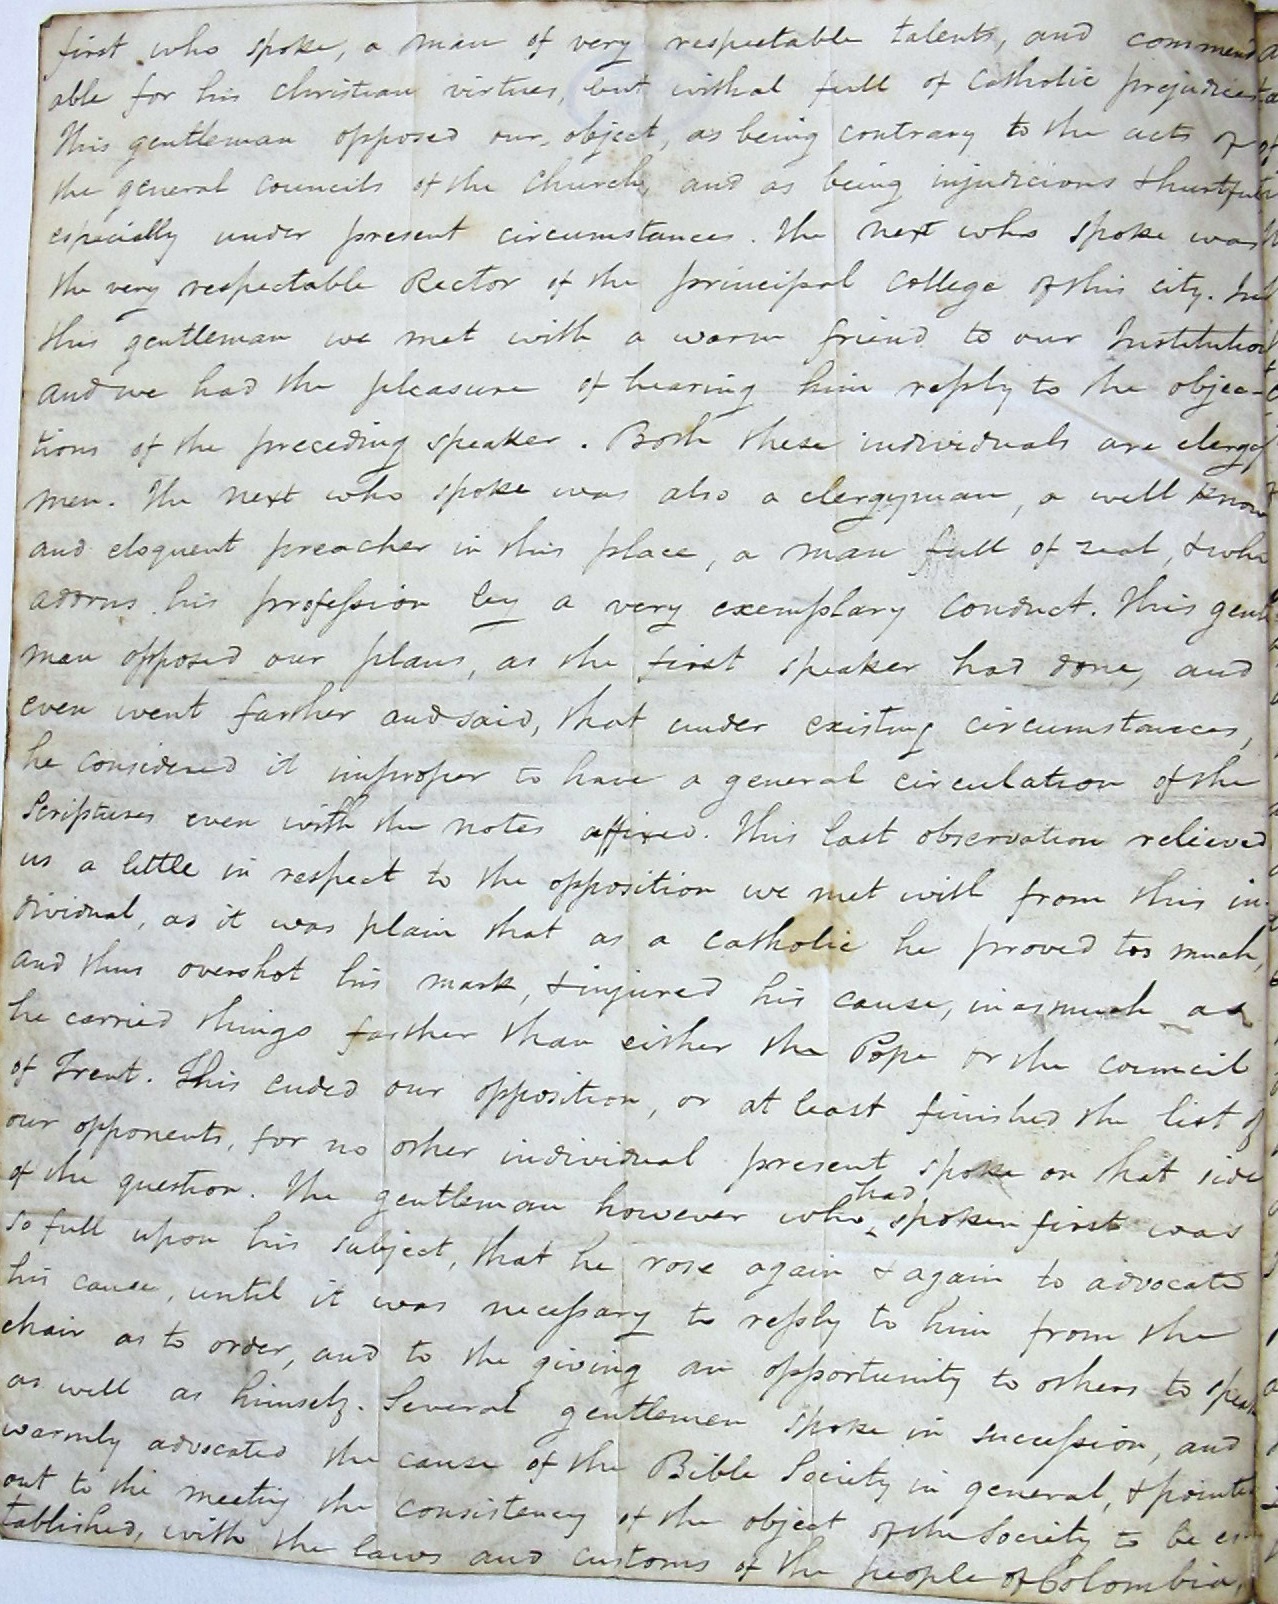 first who spoke, a man of very respectable talents, and commend
able for his christian virtues, but withal full of Catholic prejudices
This gentleman opposed our object, as being contrary to the acts of
the general councils of the church, and as being injudicious & hurtful
especially under present circumstances. The next who spoke was
the very respectable Rector of the principal college of this city. In
this gentleman we met with a warm friend to our Institution
and we had the pleasure of hearing him reply to the objec-
tions of the preceding speaker. Both these individuals are clergy
men. The next who spoke was also a clergyman, a well know
and eloquent preacher in this place, a man full of zeal, & who
adorns his profession by a very exemplary conduct. This gentl
man opposed our plans, as the first speaker had done, and
even went farther and said, that under existing circumstances,
he considered it improper to have a general circulation of the
Scriptures even with the notes affixed. This last observation relieved
us a little in respect to the opposition we met with from this in-
dividual, as it was plain that as a catholic he proved too much,
and thus overshot his mark, & injured his cause, in as much as
he carried things farther than either the Pope or the council
of Trent. This ended our opposition, or at least finished the list of
our opponents, for no other individual present spoke on that side
of the question. The gentleman however who had spoken first was
so full upon his subject, that he rose again & again to advocate
his cause, until it was necessary to reply to him from the
chair as to order, and to the giving an opportunity to others to speak
as well as himself. Several gentlemen spoke in succession, and
warmly advocated the cause of the Bible Society in general, & pointed
out to the meeting the consistency of the object of the Society to be es-
tablished, with the laws and customs of the people of Colombia,